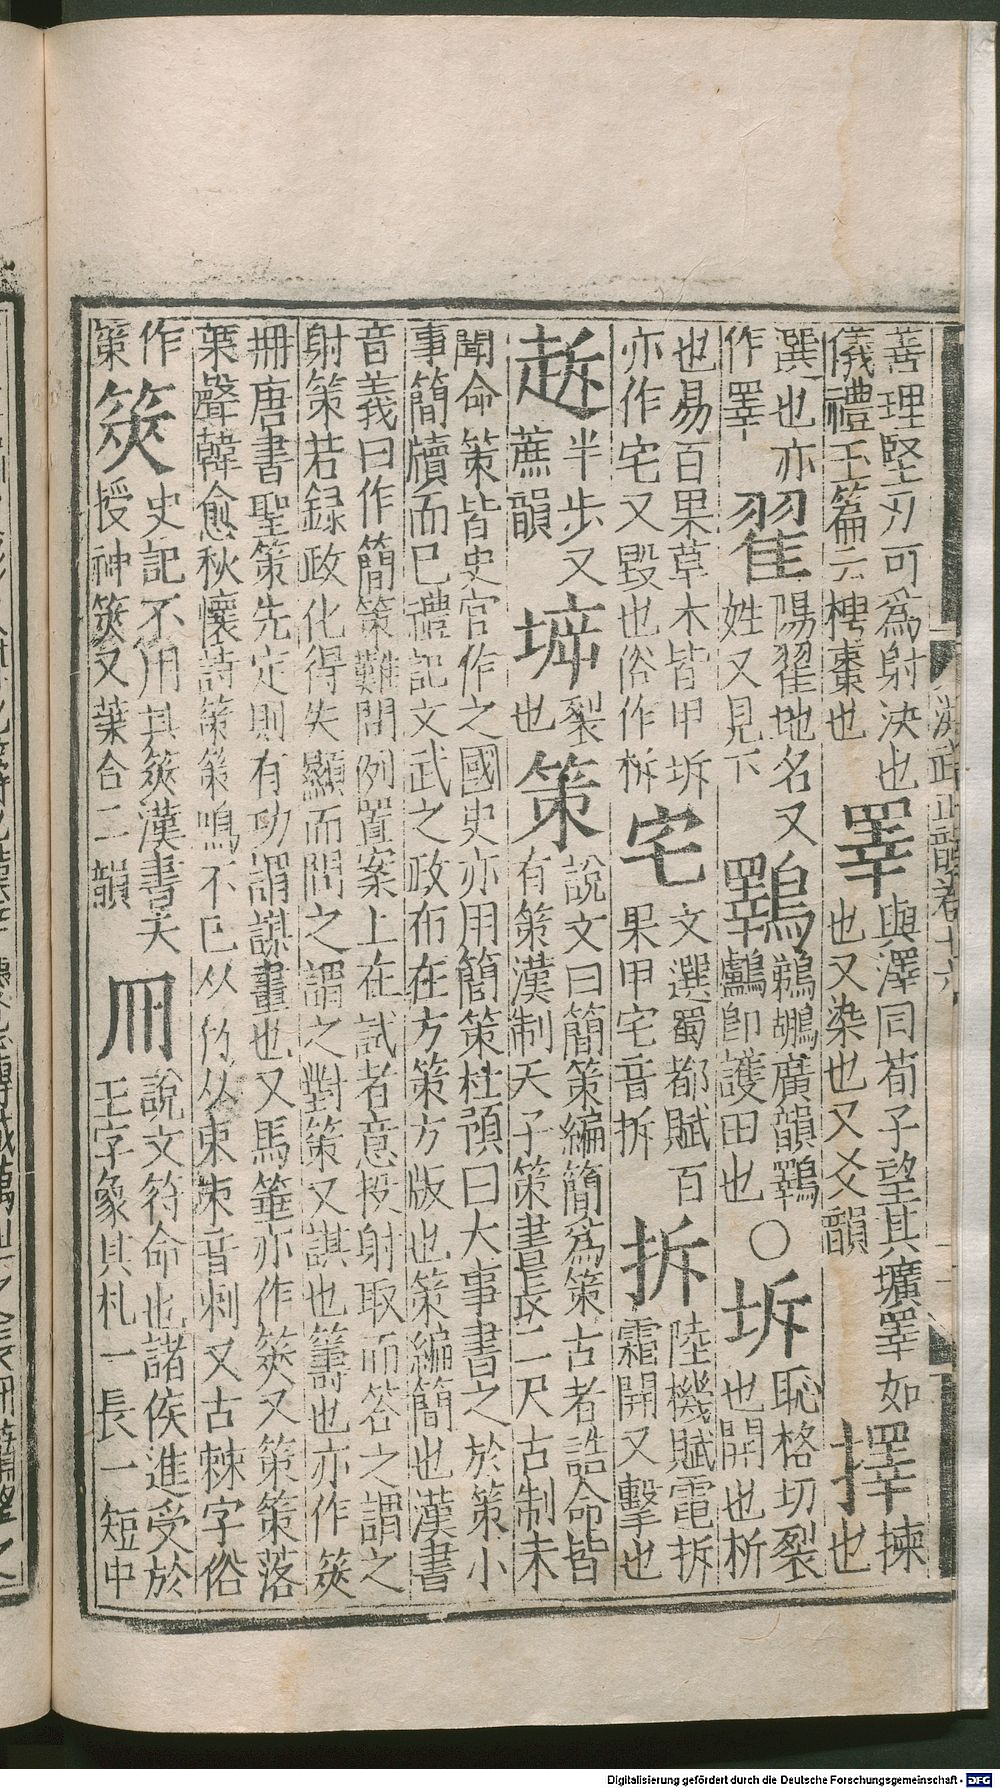 洪武正韻卷十六
善理堅刃可為射決也
儀禮玉篇云梬棗也
睪
與澤同荀子望其壙睪如
也又染也又爻韻
擇
揀
也
選也亦
作睪
翟
陽翟地名又
姓又見下
鸅
鵜鶘廣韻鸅
鸕即護田也
○坼
恥格切裂
也開也析
也易百果草木皆甲坼
亦作宅又毀也俗作柝
宅
文選蜀都賦百
果甲宅音拆
拆
陸機賦霆拆
霜開又擊也
趀
半步又
蔗韻
㙞
裂
也
策
說文曰簡策編簡為策古者誥命皆
有策漢制天子策書長二尺古制未
聞命策皆史官作之國史亦用簡策杜預曰大事書之於策小
事簡牘而已禮記文武之政布在方策方版也策編簡也漢書
音義曰作簡策難問例置案上在試者意投射取而答之謂之
射策若録政化得失顯而問之謂之對策又謀也籌也亦作筴
冊唐書聖策先定則有功謂謀畫也又馬箠亦作筴又策策落
葉聲韓愈秋懷詩策策鳴不已从竹从朿朿音刺又古棘字俗
作
筞
筴
史記不用其筴漢書天
授神筴又葉合二韻
冊
說文符命也諸侯進受於
王字象其札一長一短中
Digitalisierung gefördert durch die Deutsche Forschungsgemeinschaft - DFG